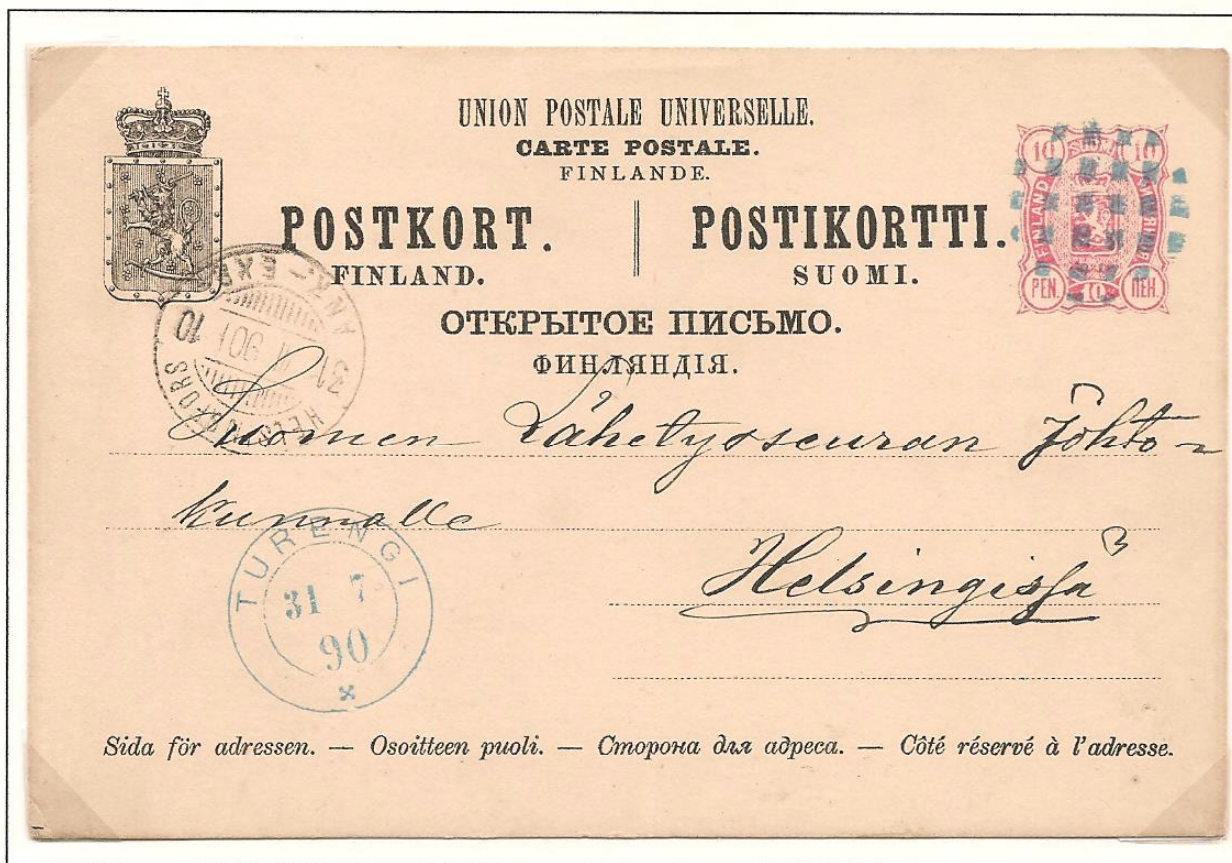 UNION POSTALE UNIVERSELLE.
CARTE POSTALE.
FINLANDE.
POSTKORT. POSTIKORTTI.
FINLAND. SUOMI.
ОТКРЫТОЕ ПИСЬМО.
ФИНЛЯНДІЯ.
10 SUOMI 10
FINLAND
PEN. 10 ПЕН.
ANK.-EXP.
31 90 I
HELSINGFORS 10
Suomen Lähetysseuran Johto-
kunnalle
Helsingissä
TURENGI
31 7
90
Sida för adressen. — Osoitteen puoli. — Сторона для адреса. — Côté réservé à l'adresse.